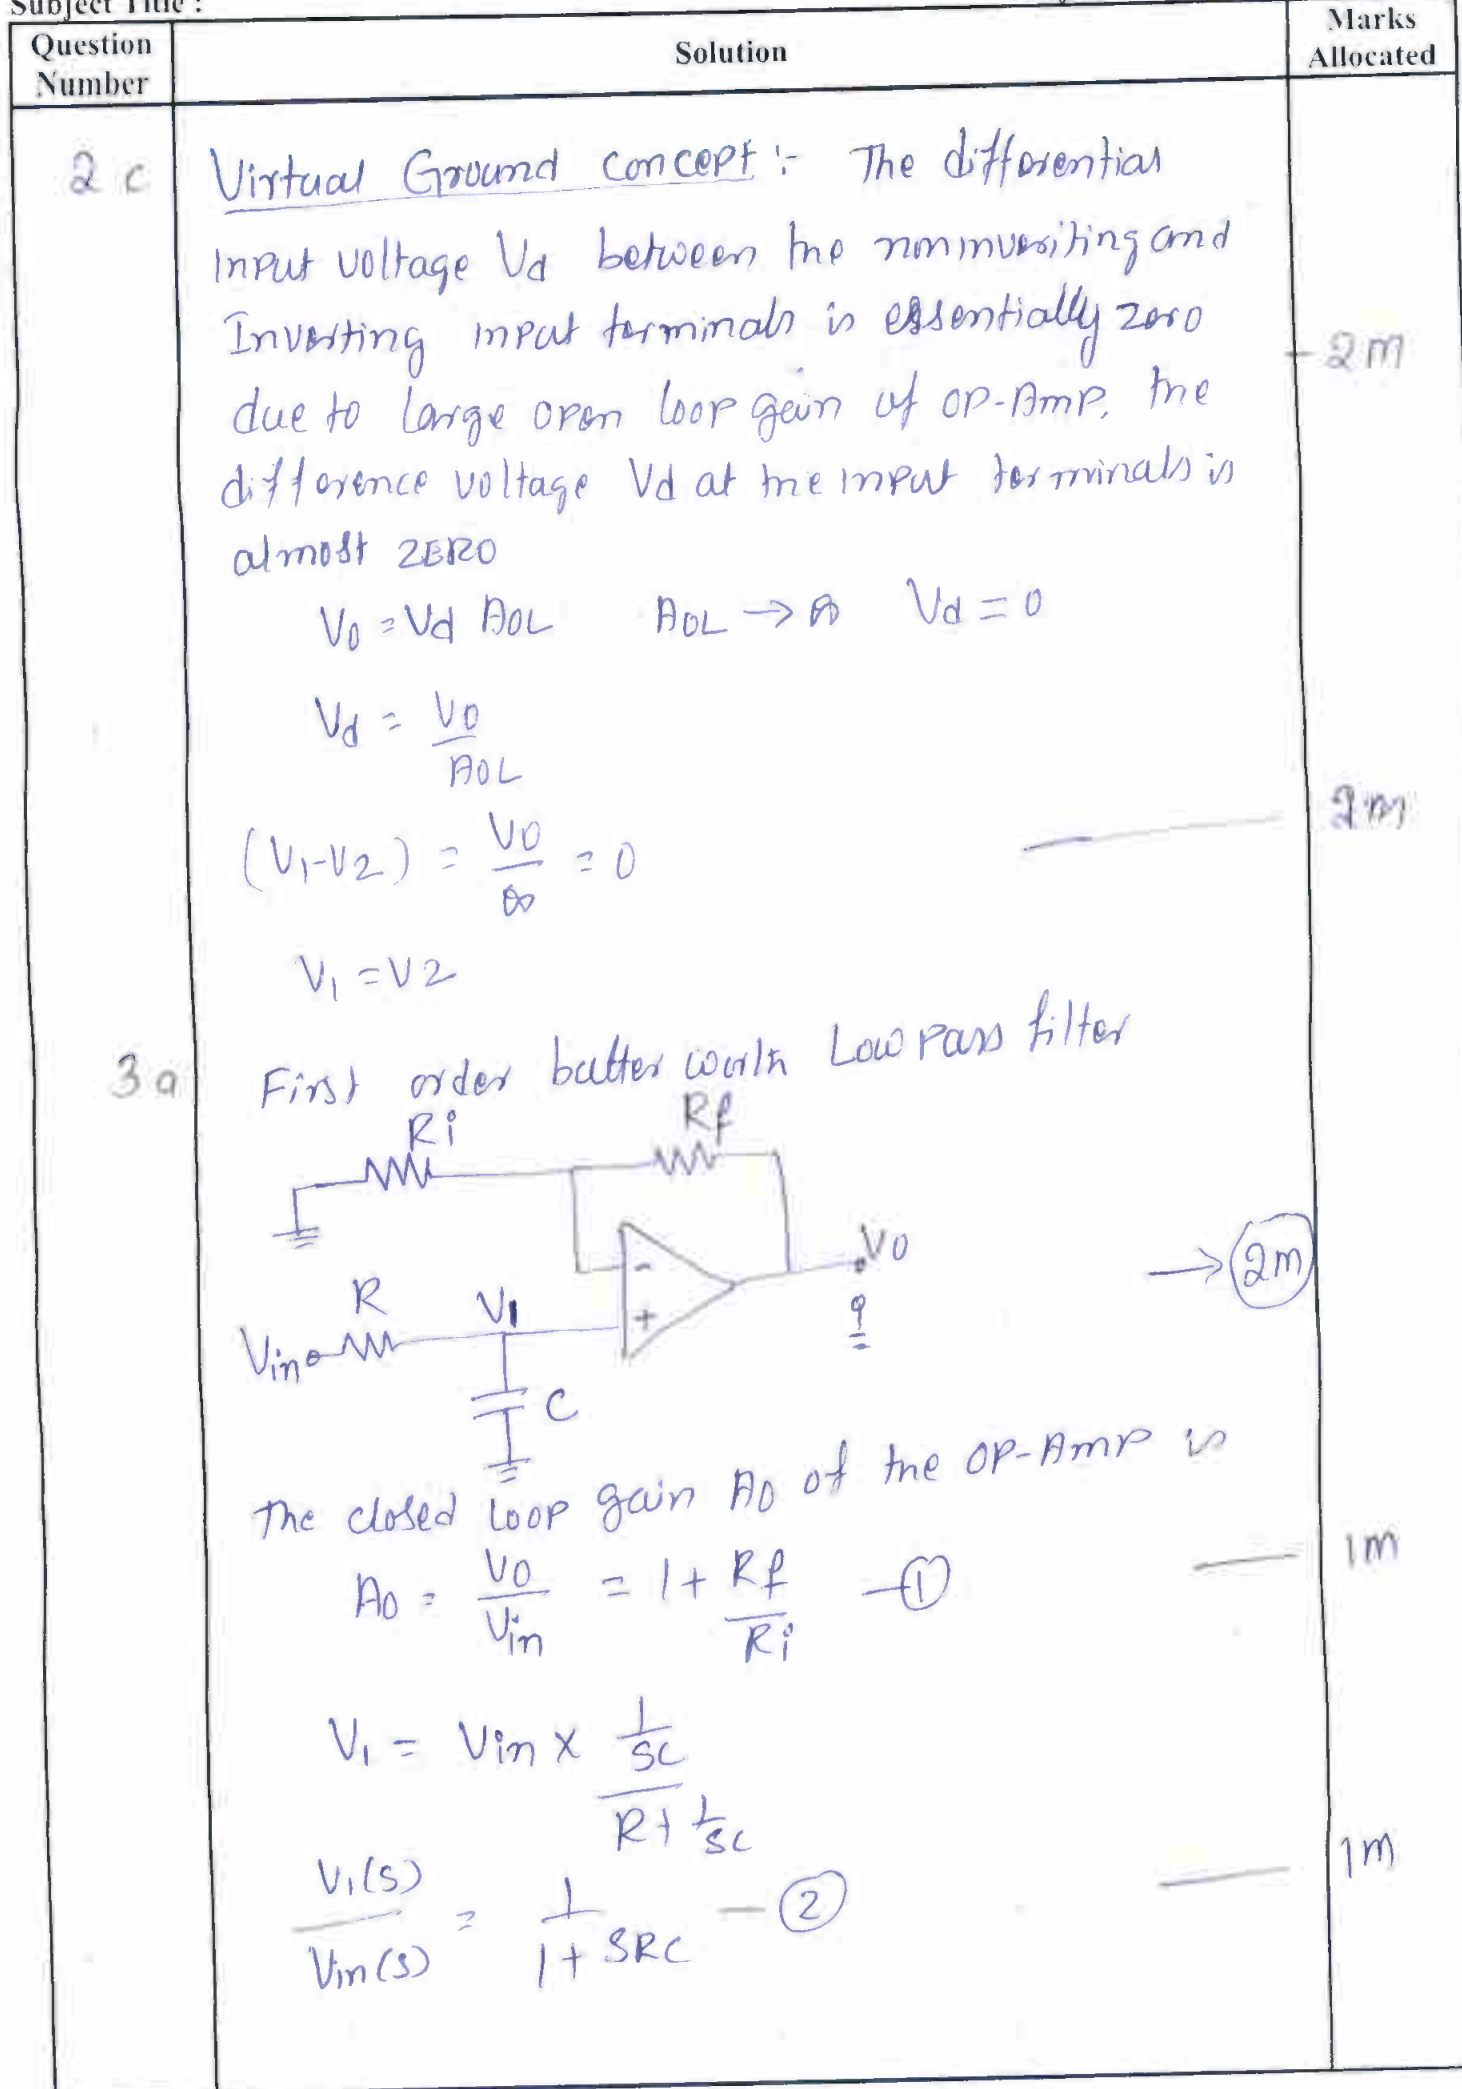 Subject Title :
Question Number
Solution
Marks Allocated
2 c
Virtual Ground concept :- The differential
input voltage Vd between the noninverting and
Inverting input terminals is essentially zero
2m
due to large open loop gain of OP-Amp. The
difference voltage Vd at the input terminals is
almost ZERO
V0 = Vd AOL AOL → ∞ Vd = 0
Vd = V0 / AOL
2m
(V1-V2) = V0 / ∞ = 0
V1 = V2
3a
First order butter worth Low pass filter
Ri Rf
-
V0
→ 2m
R V1
+
Vin
C
The closed loop gain A0 of the OP-Amp is
1m
A0 = V0 / Vin = 1 + Rf / Ri — ①
V1 = Vin x 1/SC / R + 1/SC
1m
V1(S) / Vin(S) = 1 / 1 + SRC — ②